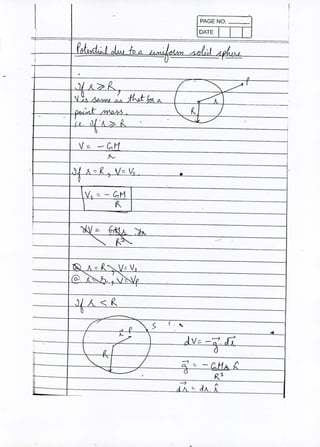 PAGE NO.
DATE
Potential due to a uniform solid sphere
If r ≥ R,
V is same as that for a
point mass.
i.e. If r ≥ R
P
r
R
V = -GM
r
If r = R, V = Vs.
Vs = -GM
R
dV = GMr dr
R³
@ r = R, V = Vs
@ r = r, V = Vp
If r < R
S
r P
R
dV = -g⃗.dr⃗
g⃗ = -GMr r̂
R³
dr⃗ = dr r̂